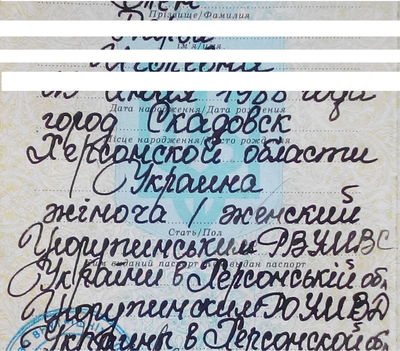 Прізвище/Фамилия
Ім'я/Имя
июля 1988 года
Дата народження/Дата рождения
город Скадовск
Місце народження/Место рождения
Херсонской области
Украина
жіноча / женский
Стать/Пол
Цюрупинським РВУМВС
Ким виданий паспорт/Кем выдан паспорт
України в Херсонській обл
Цюрупинским РОУМВД
Украины в Херсонской обл